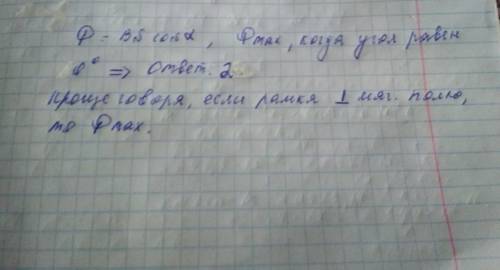 Ф = BS cosα, Фmax, когда угол равен
0° => Ответ. 2
проще говоря, если рамка ⊥ маг. полю,
то Фmax.